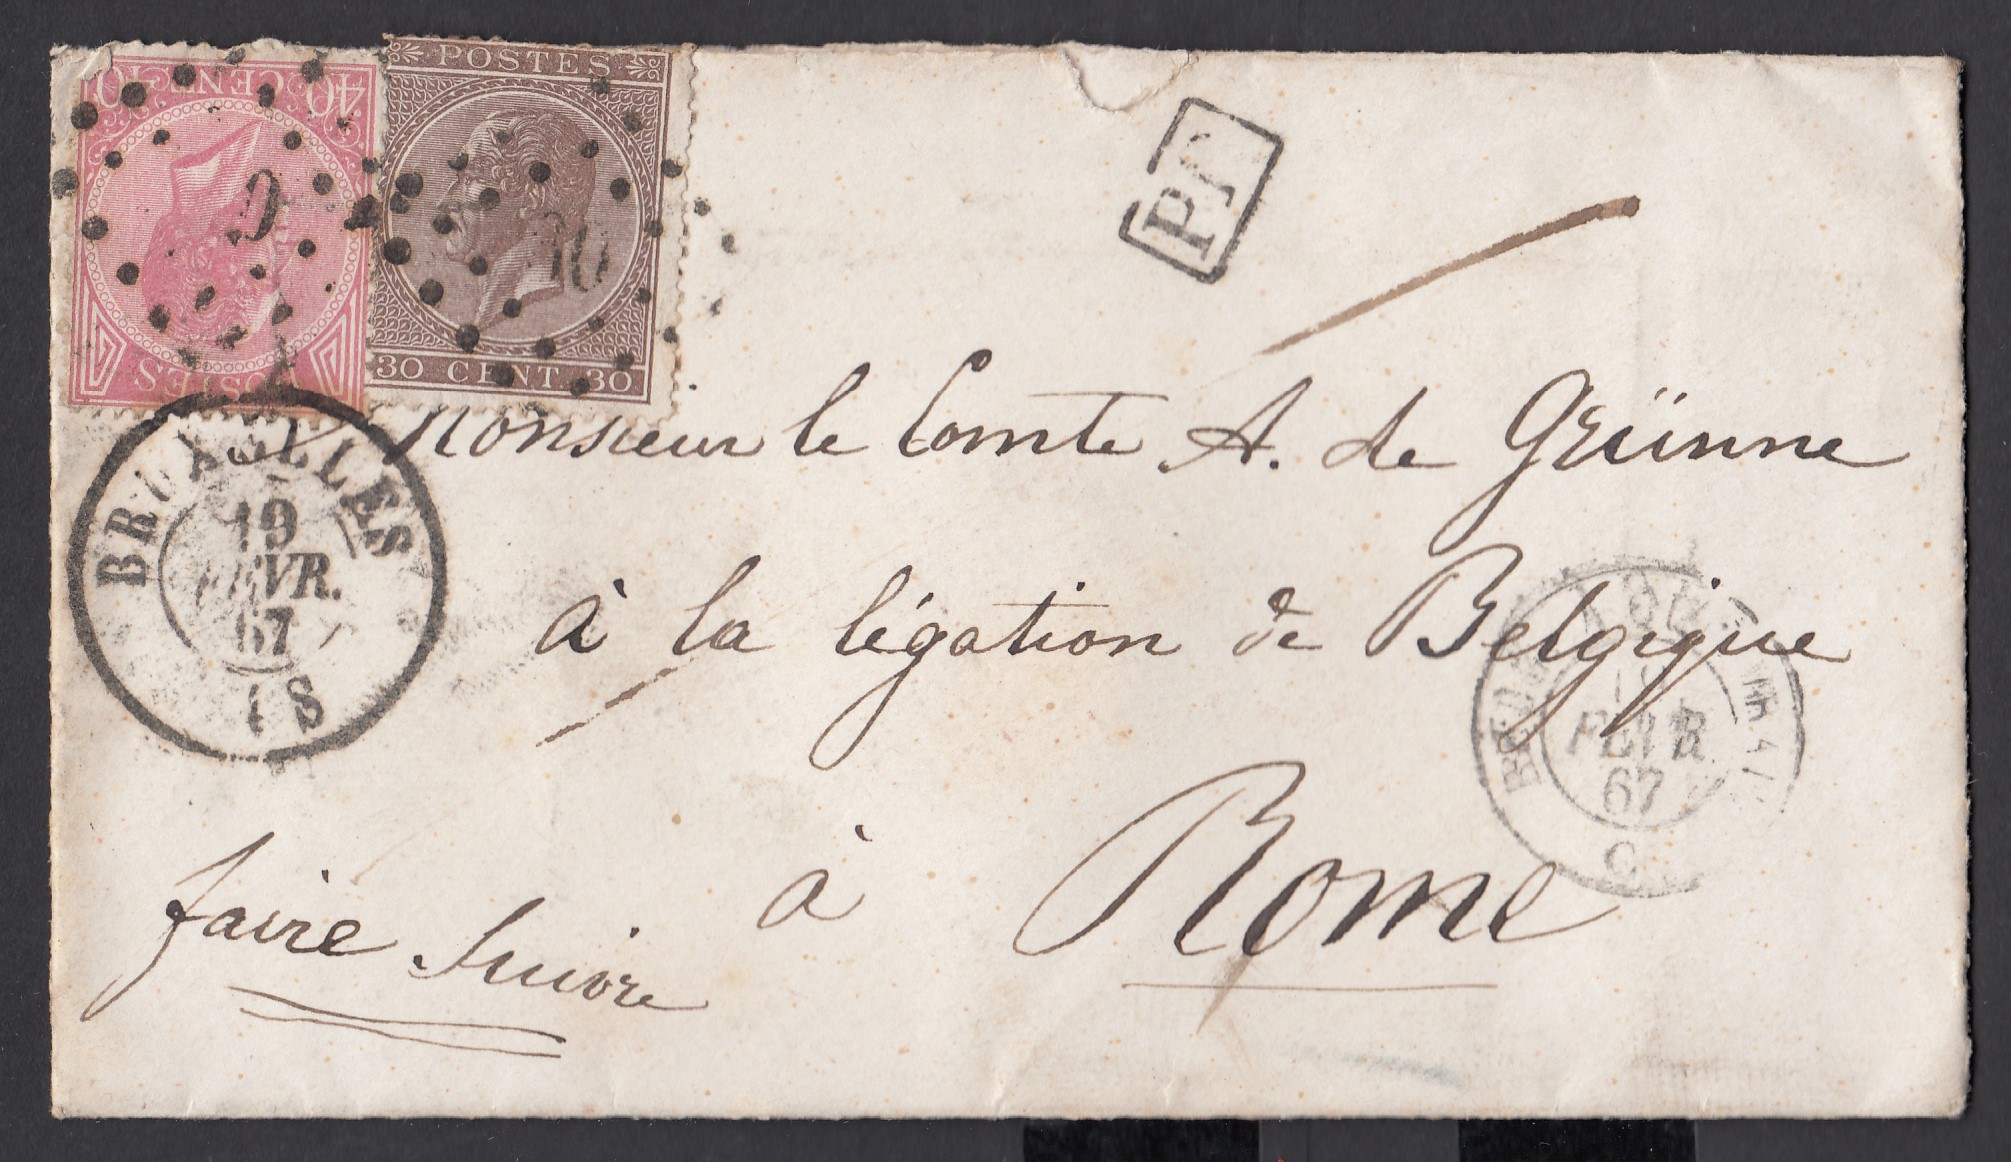 40 CENT. 40
POSTES
POSTES
30 CENT. 30
PD
BRUXELLES
19
FÉVR.
67
4 S
Monsieur le Comte A. de Grünne
à la légation de Belgique
à Rome
faire suivre
FEVR
67
C